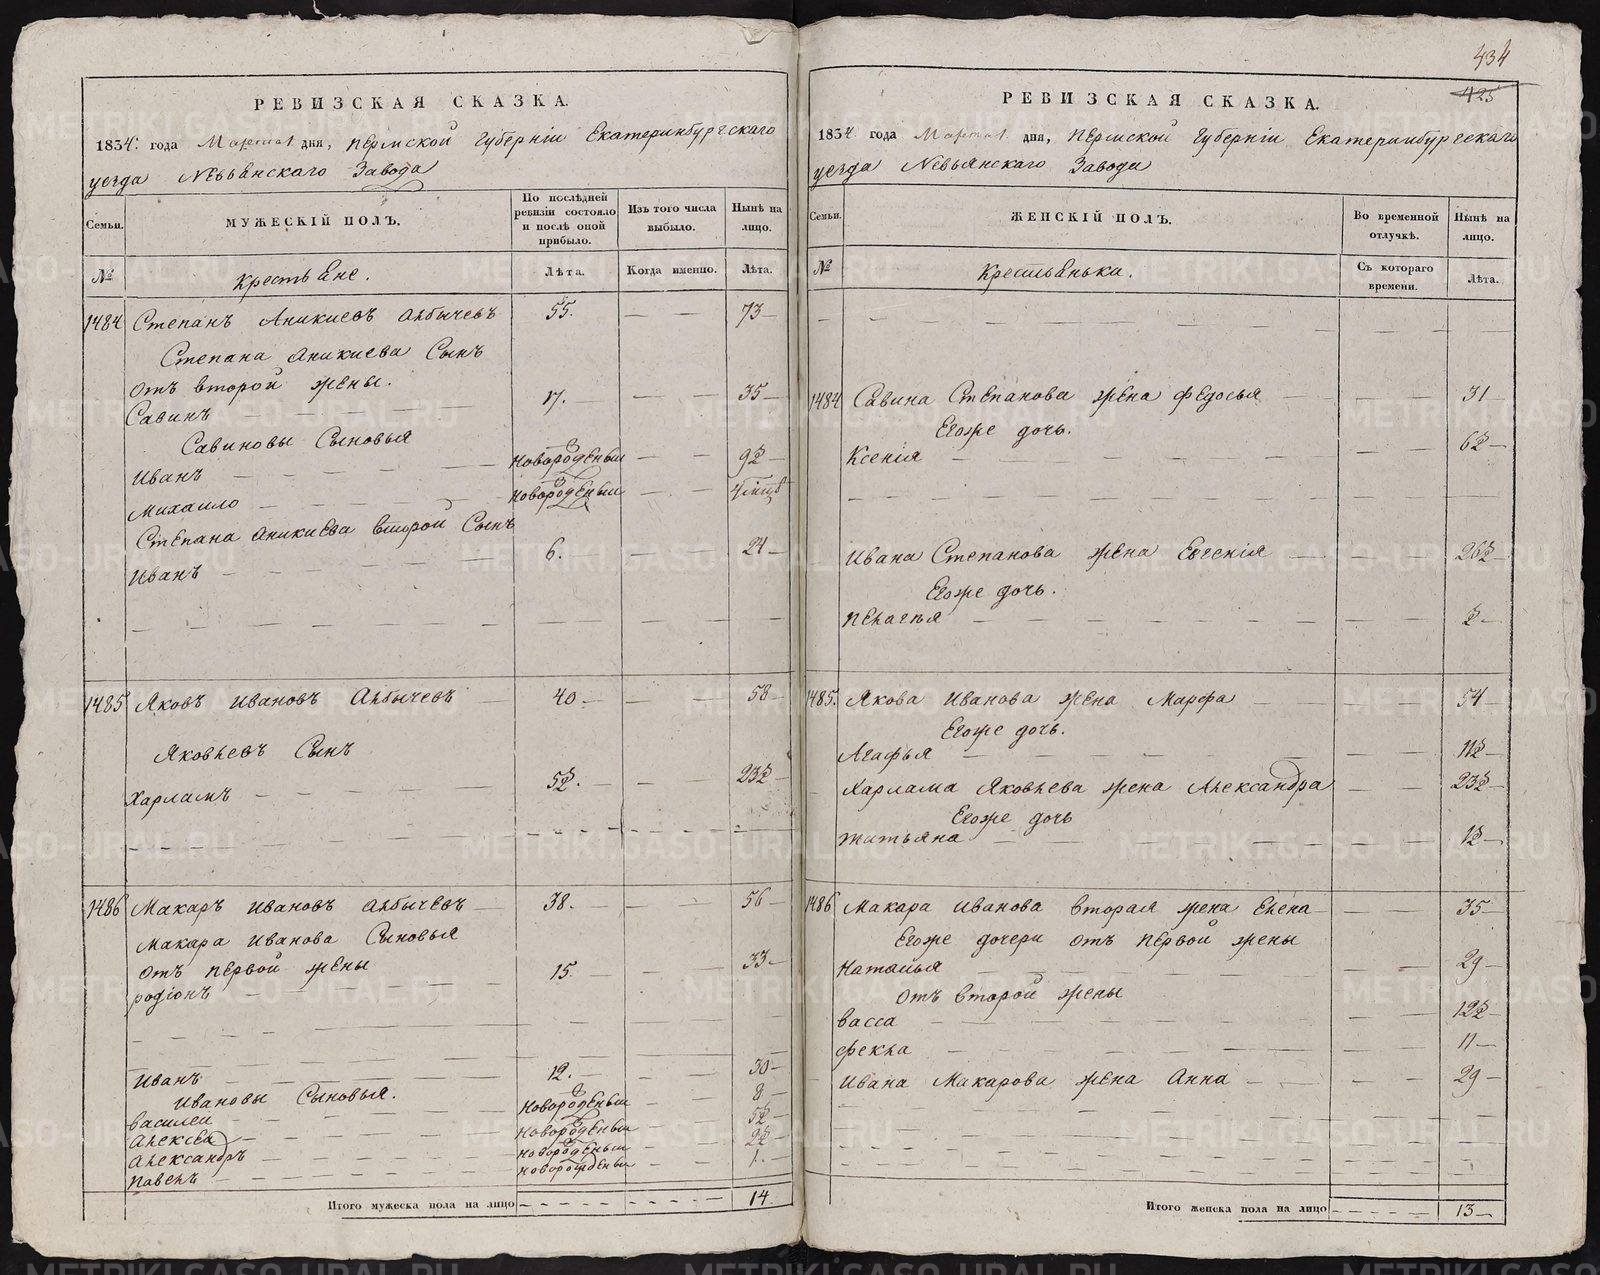 РЕВИЗСКАЯ СКАЗКА.
1834. года Марта 1 дня, Пермской Губерніи Екатеринбургскаго
уезда Невьянскаго Завода
Семьи.
МУЖЕСКІЙ ПОЛЪ.
По послѣдней ревизіи состояло и послѣ оной прибыло.
Изъ того числа выбыло.
Нынѣ на лицо.
№
Крестьяне.
Лѣта.
Когда именно.
Лѣта.
1484 Степанъ Аникиевъ Албычевъ 55. 73
Степана Аникиева Сынъ
отъ второй жены.
Савинъ 17. 35
Савиновы Сыновья
Иванъ новорожденый 9½
Михаило новорожденый
Степана Аникиева второй Сынъ
Иванъ 6. 24
1485 Яковъ Ивановъ Албычевъ 40. 58
Яковлевъ Сынъ
Харламъ 5½. 23½
1486 Макаръ Ивановъ Албычевъ 38. 56
Макара Иванова Сыновья
отъ первой жены
родіонъ 15. 33
Иванъ 12. 30
Ивановы Сыновья.
василеи новорожденыи 8
Алексеа новорожденыи 5½
Александръ новорожденыи 2½
Павелъ новорожденыи 1.
Итого мужеска пола на лицо 14.
434
425
РЕВИЗСКАЯ СКАЗКА.
1834. года Марта 1 дня, Пермской Губерніи Екатеринбургскаго
уезда Невьянскаго Завода
Семьи.
ЖЕНСКІЙ ПОЛЪ.
Во временной отлучкѣ.
Нынѣ на лицо.
№
Крестьянька.
Съ котораго времени.
Лѣта.
1484 Савина Степанова жена Федосья 31
Егоже дочь.
Ксенія 6½
Ивана Степанова жена Евгенія 26½
Егоже дочь.
Пелагѣя ½
1485. Якова Иванова жена Марфа 54
Егоже дочь.
Агафья 11½
Харлама Яковлева жена Александра 23½
Егоже дочь
татьяна 1½
1486 Макара Иванова вторая жена Елена 35
Егоже дочери отъ первой жены
Наталья 29
отъ второй жены
васса 12½
фекла 11
Ивана Макарова жена Анна 29
Итого женска пола на лицо 13
METRIKI.GASO-URAL.RU